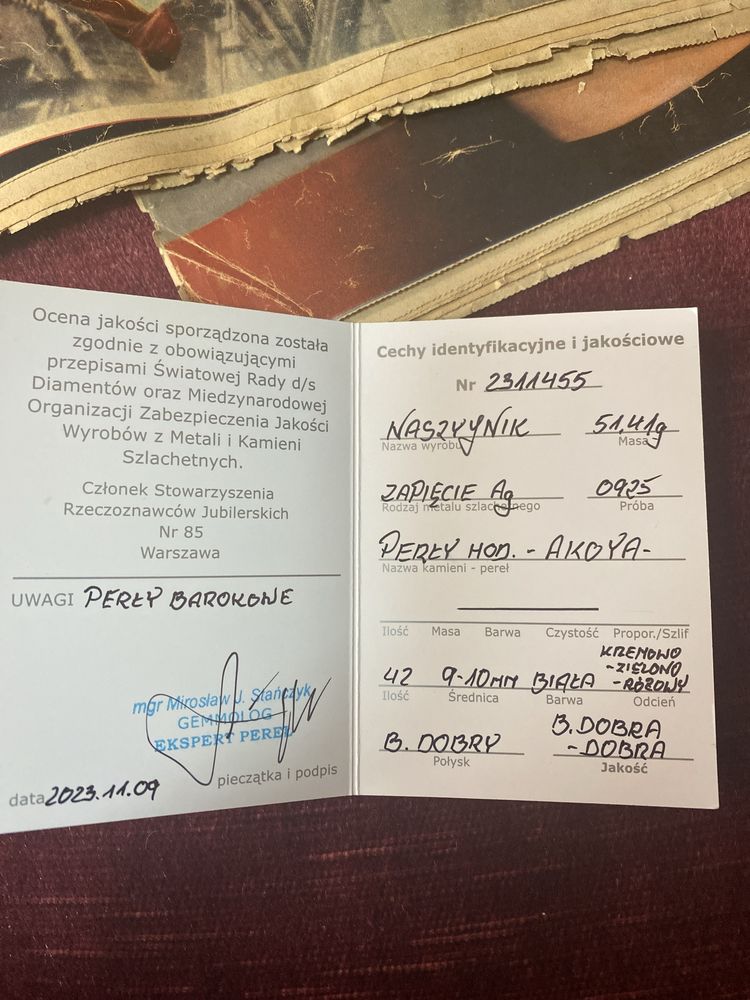 Ocena jakości sporządzona została
zgodnie z obowiązującymi
przepisami Światowej Rady d/s
Diamentów oraz Miedzynarodowej
Organizacji Zabezpieczenia Jakości
Wyrobów z Metali i Kamieni
Szlachetnych.
Członek Stowarzyszenia
Rzeczoznawców Jubilerskich
Nr 85
Warszawa
UWAGI PERŁY BAROKOWE
mgr Mirosław J. Stańczyk
GEMMOLOG
EKSPERT PEREŁ
pieczątka i podpis
data 2023.11.09
Cechy identyfikacyjne i jakościowe
Nr 2311455
NASZYJNIK 51,41g
Nazwa wyrobu Masa
ZAPIĘCIE Ag 0925
Rodzaj metalu szlachetnego Próba
PERŁY HOD. - AKOYA-
Nazwa kamieni - pereł
Ilość Masa Barwa Czystość Propor./Szlif
KREMOWO
-ZIELONO
42 9-10MM BIAŁA -RÓŻOWY
Ilość Średnica Barwa Odcień
B. DOBRY B. DOBRA
-DOBRA
Połysk Jakość